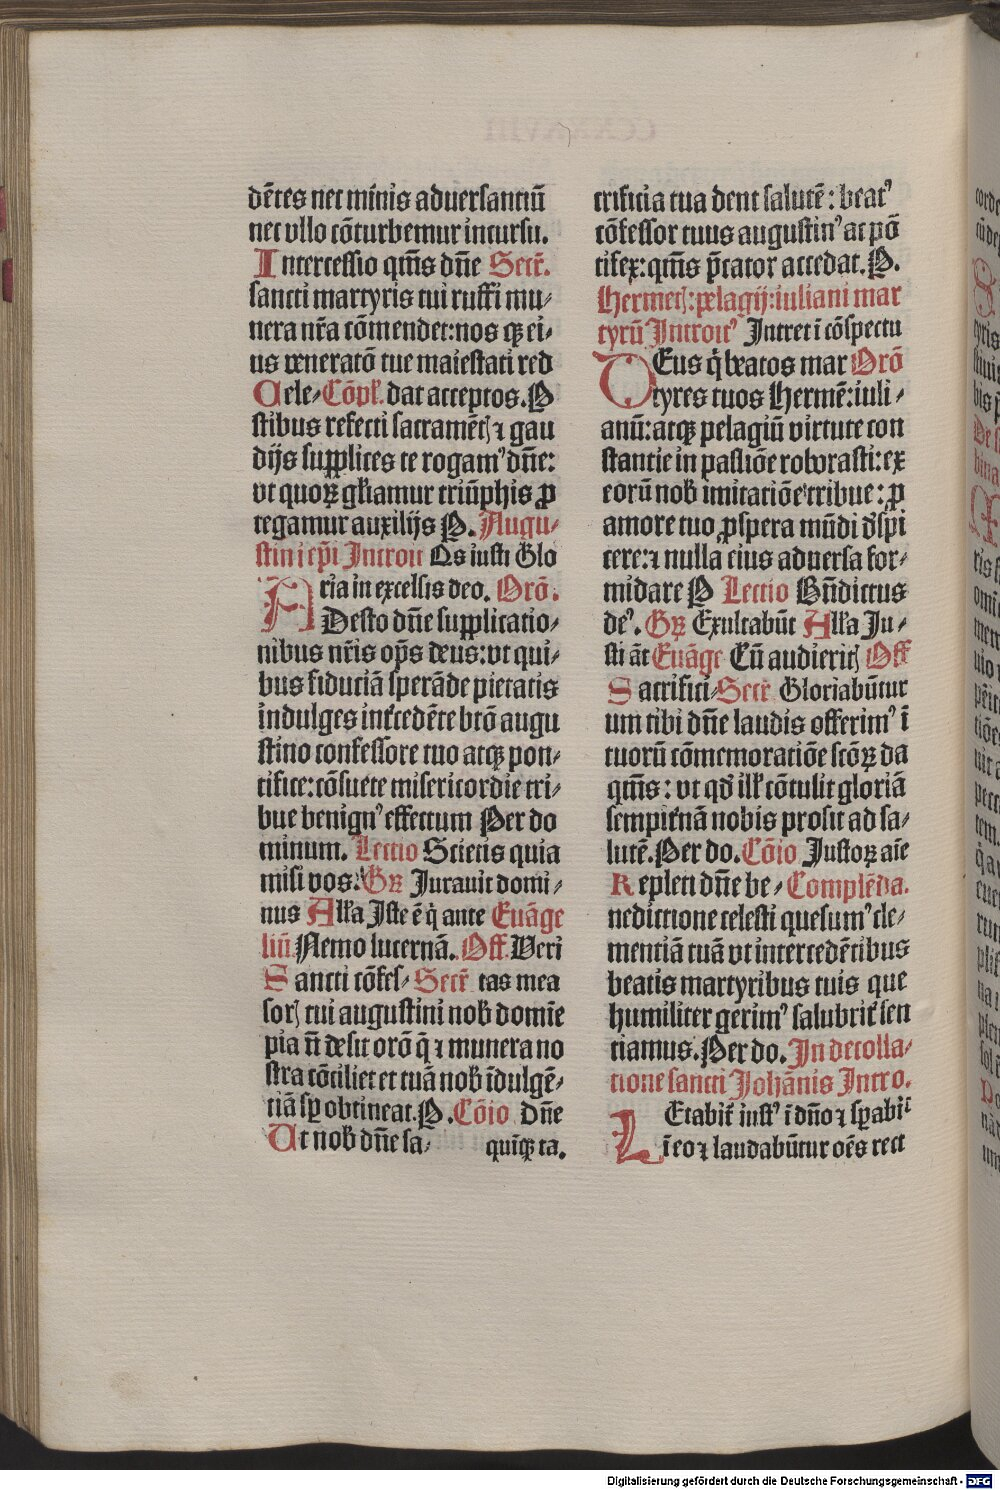 dētes nec minis aduersantiū
nec vllo cōturbemur incursu.
Intercessio qms dn̄e Secr̄.
sancti martyris tui ruffi mu⸗
nera nr̄a cōmendet:nos qꝫ ei⸗
us veneratō tue maiestati red
Cele⸗ Cōpl̄. dat acceptos. P
stibus refecti sacramētꝭ ⁊ gau
dijs supplices te rogamꝰ dn̄e:
vt quoꝝ gl̄iamur triūphis ꝓ
tegamur auxilijs P. Augu⸗
stini ep̄i Introit Os iusti Glo
ria in excelsis deo. Orō.
ADesto dn̄e supplicatio⸗
nibus nr̄is op̄s deus:vt qui⸗
bus fiduciā sperāde pietatis
indulges int̄cedēte btō augu
stino confessore tuo atqꝫ pon⸗
tifice:cōsuete misericordie tri⸗
bue benignꝰ effectum Per do
minum. Lectio Sciens quia
misi vos. Gꝝ Jurauit domi⸗
nus All̄a Jste ē q̄ ante Euāge
liū Nemo lucernā. Off. Veri
Sancti cōfes⸗ Secr̄ tas mea
sorꝭ tui augustini nob̄ domīe
pia n̄ desit orō q̄ ⁊ munera no
stra cōciliet et tuā nob̄ īdulgē⸗
tiā sꝑ obtineat. P. Cōio Dn̄e
Ut nob̄ dn̄e sa⸗ quīqꝫ ta.
crificia tua dent salutē: beatꝰ
cōfessor tuus augustinꝰ ac pō
tifex:qms p̄cator accedat. P.
Hermetꝭ:pelagij:iuliani mar
tyrū Introitꝰ Intret ī cōspectu
DEus q̄ beatos mar Orō
tyres tuos Hermē:iuli⸗
anū:atqꝫ pelagiū virtute con
stantie in passiōe roborasti:ex
eorū nob̄ imitatiōe tribue: ꝓ
amore tuo ꝓspera mūdi d̄spi
cere:⁊ nulla eius aduersa for⸗
midare P Lectio Bn̄dictus
deꝰ. Gꝝ Exultabūt All̄a Ju⸗
sti āt Euāge Cū audieritꝭ Off
Sacrifici⸗ Secr̄ Gloriabūtur
um tibi dn̄e laudis offerimꝰ ī
tuorū cōmemoratiōe scōꝝ da
qms: vt qd̄ ill̄ cōtulit gloriā
sempit̄nā nobis prosit ad sa⸗
lutē. Per do. Cōio Justoꝝ aīe
Repleti dn̄e be⸗ Complēda.
nedictione celesti quesumꝰ cle⸗
mentiā tuā vt intercedētibus
beatis martyribus tuis que
humiliter gerimꝰ salubrit̄ sen
tiamus. Per do. In decolla⸗
tione sancti Johānis Intro.
LEtabit̄ iustꝰ ī dn̄o ⁊ sꝑabit̄
ī eo ⁊ laudabūtur oēs rect
Digitalisierung gefördert durch die Deutsche Forschungsgemeinschaft - DFG